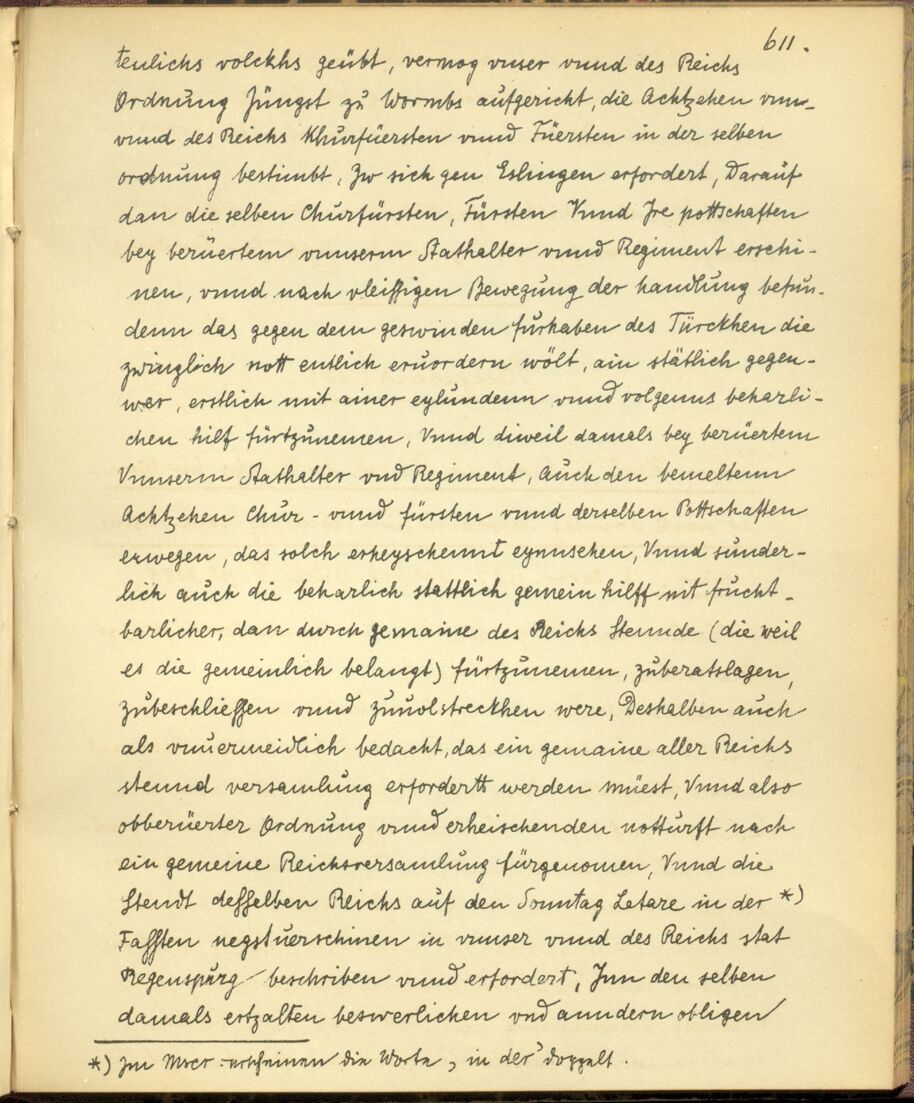 611.
teulichs volckhs geübt, vermog vnser vnnd des Reichs
Ordnung Jüngst zu Wormbs aufgericht, die Achtzehen vnn-
vnnd des Reichs Khurfüersten vnnd Füersten in der selben
ordnung bestimbt, Zw sich gen Eslingen erfordert, Darauf
dan die selben Churfürsten, Fürsten Vnnd Jre pottschaften
bey berüertem vnnserm Stathalter vnnd Regiment erschi-
nen, vnnd nach vleissigen Bewegung der handlung befun-
denn das gegen dem geswinden fürhaben des Türckhen die
zwinglich nott entlich eruordern wölt, ain stätlich gegen-
wer, erstlich mit ainer eylundenn vnnd volgenns beharli-
chen hilf fürtzunemen, Vnnd diweil damals bey berüertem
Vnnserm Stathalter vnd Regiment, Auch den bemeltenn
Achtzehen Chur- vnnd fürsten vnnd derselben Pottschaften
erwegen, das solch erheyschennt eynnsehen, Vnnd sunder-
lich auch die beharlich stattlich gemein hilff nit frucht-
barlicher, dan durch gemaine des Reichs Stennde (die weil
es die gemeinlich belangt) fürtzunemen, zuberatslagen,
zubeschliessen vnnd zuuolstreckhen were, Deshalben auch
als vnuermeidlich bedacht, das ein gemaine aller Reichs
stennd versamlung erfordertt werden müest, Vnnd also
obberüerter Ordnung vnnd erheischenden notturft nach
ein gemeine Reichsversamlung fürgenomen, Vnnd die
Stendt desselben Reichs auf den Sonntag Letare in der *)
Fassten negstuerschinen in vnnser vnnd des Reichs stat
Regenspurg beschriben vnnd erfordert, Jnn den selben
damals ertzalten beswerlichen vnd anndern obligen
*) Im Mscr. erscheinen die Worte „in der" doppelt.